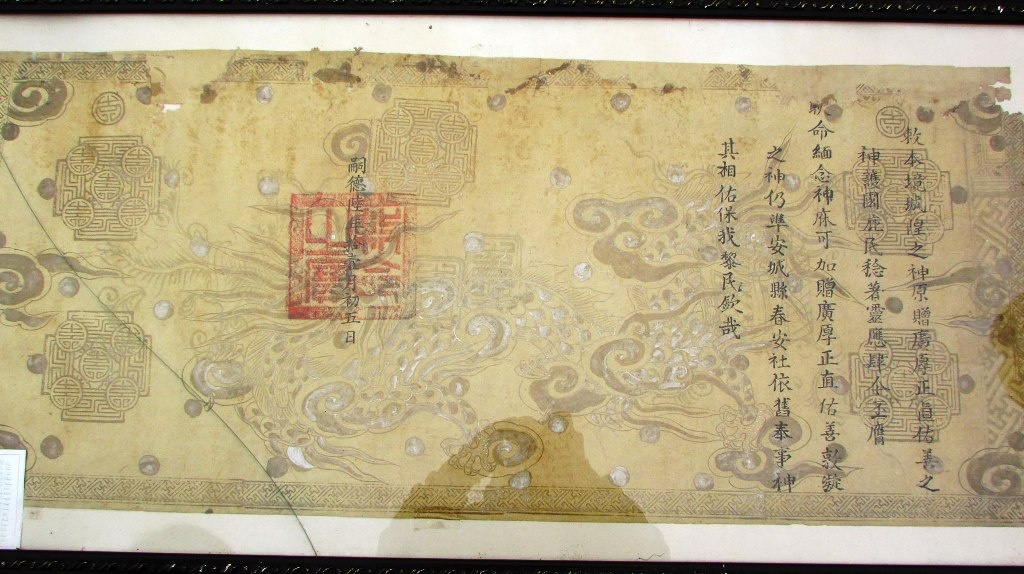 敕本境城隍之神原贈廣厚正直佑善之
神護國庇民稔著靈應肆今丕膺
耿命緬念神庥可加贈廣厚正直佑善敦凝
之神仍準安城縣春安社依舊奉事神
其相佑保我黎民欽哉
嗣德陸年拾壹月初五日